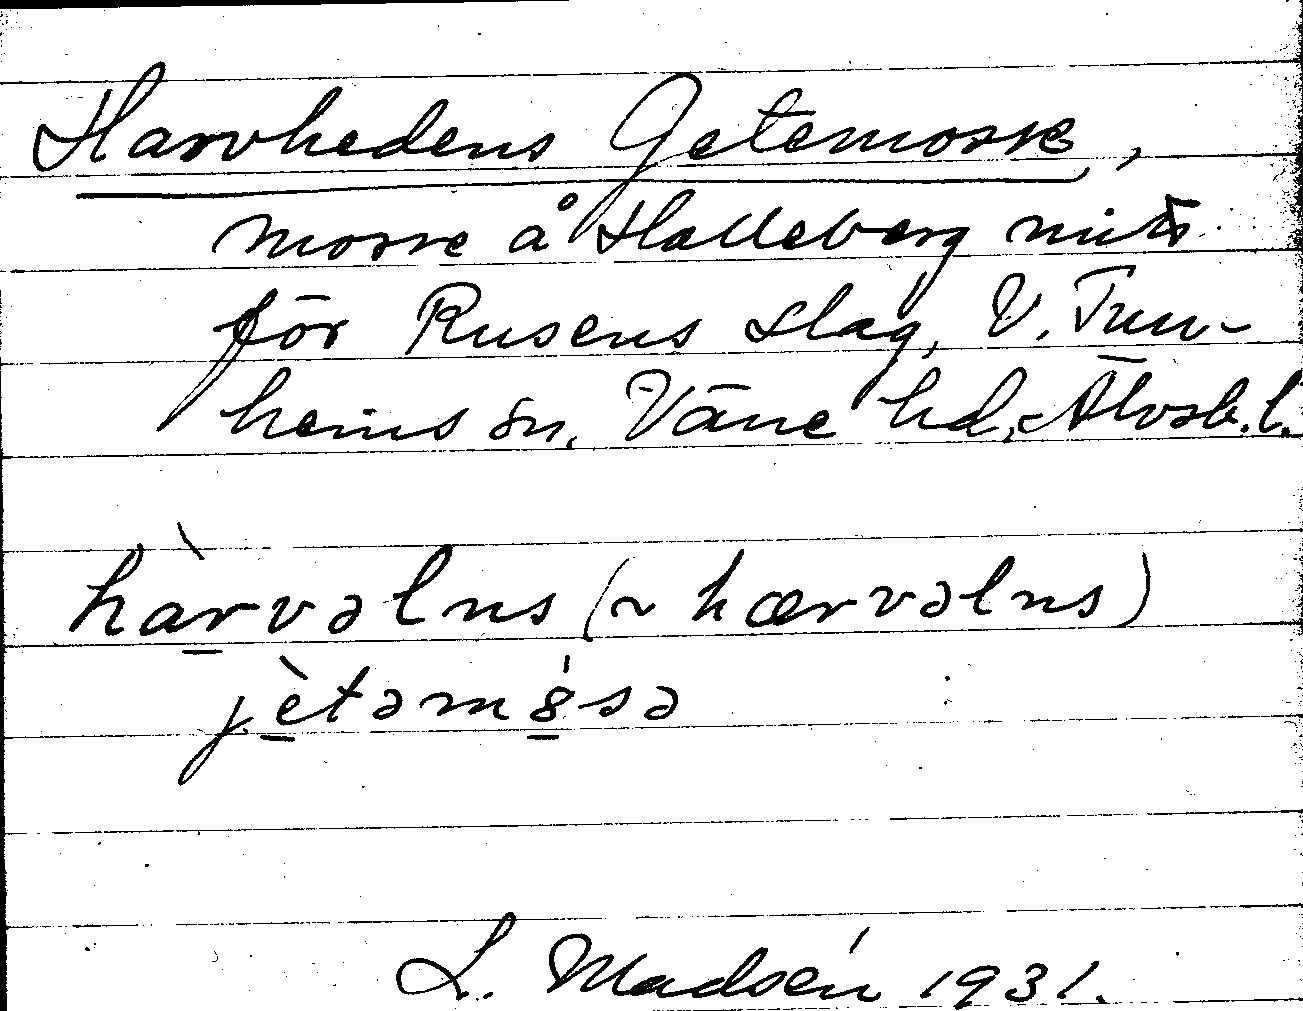 Harvhedens Getemosse,
mosse å Halleberg mitt
för Rusens slag, V. Tun-
hems sn. Väne hd, Älvsb. l.
hàrvəlns (~ hærvəlns)
jètəm8́sə
L. Madsén 1931.